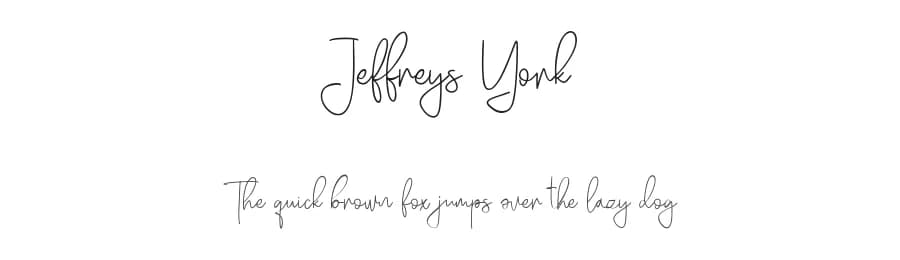 Jeffreys York
The quick brown fox jumps over the lazy dog